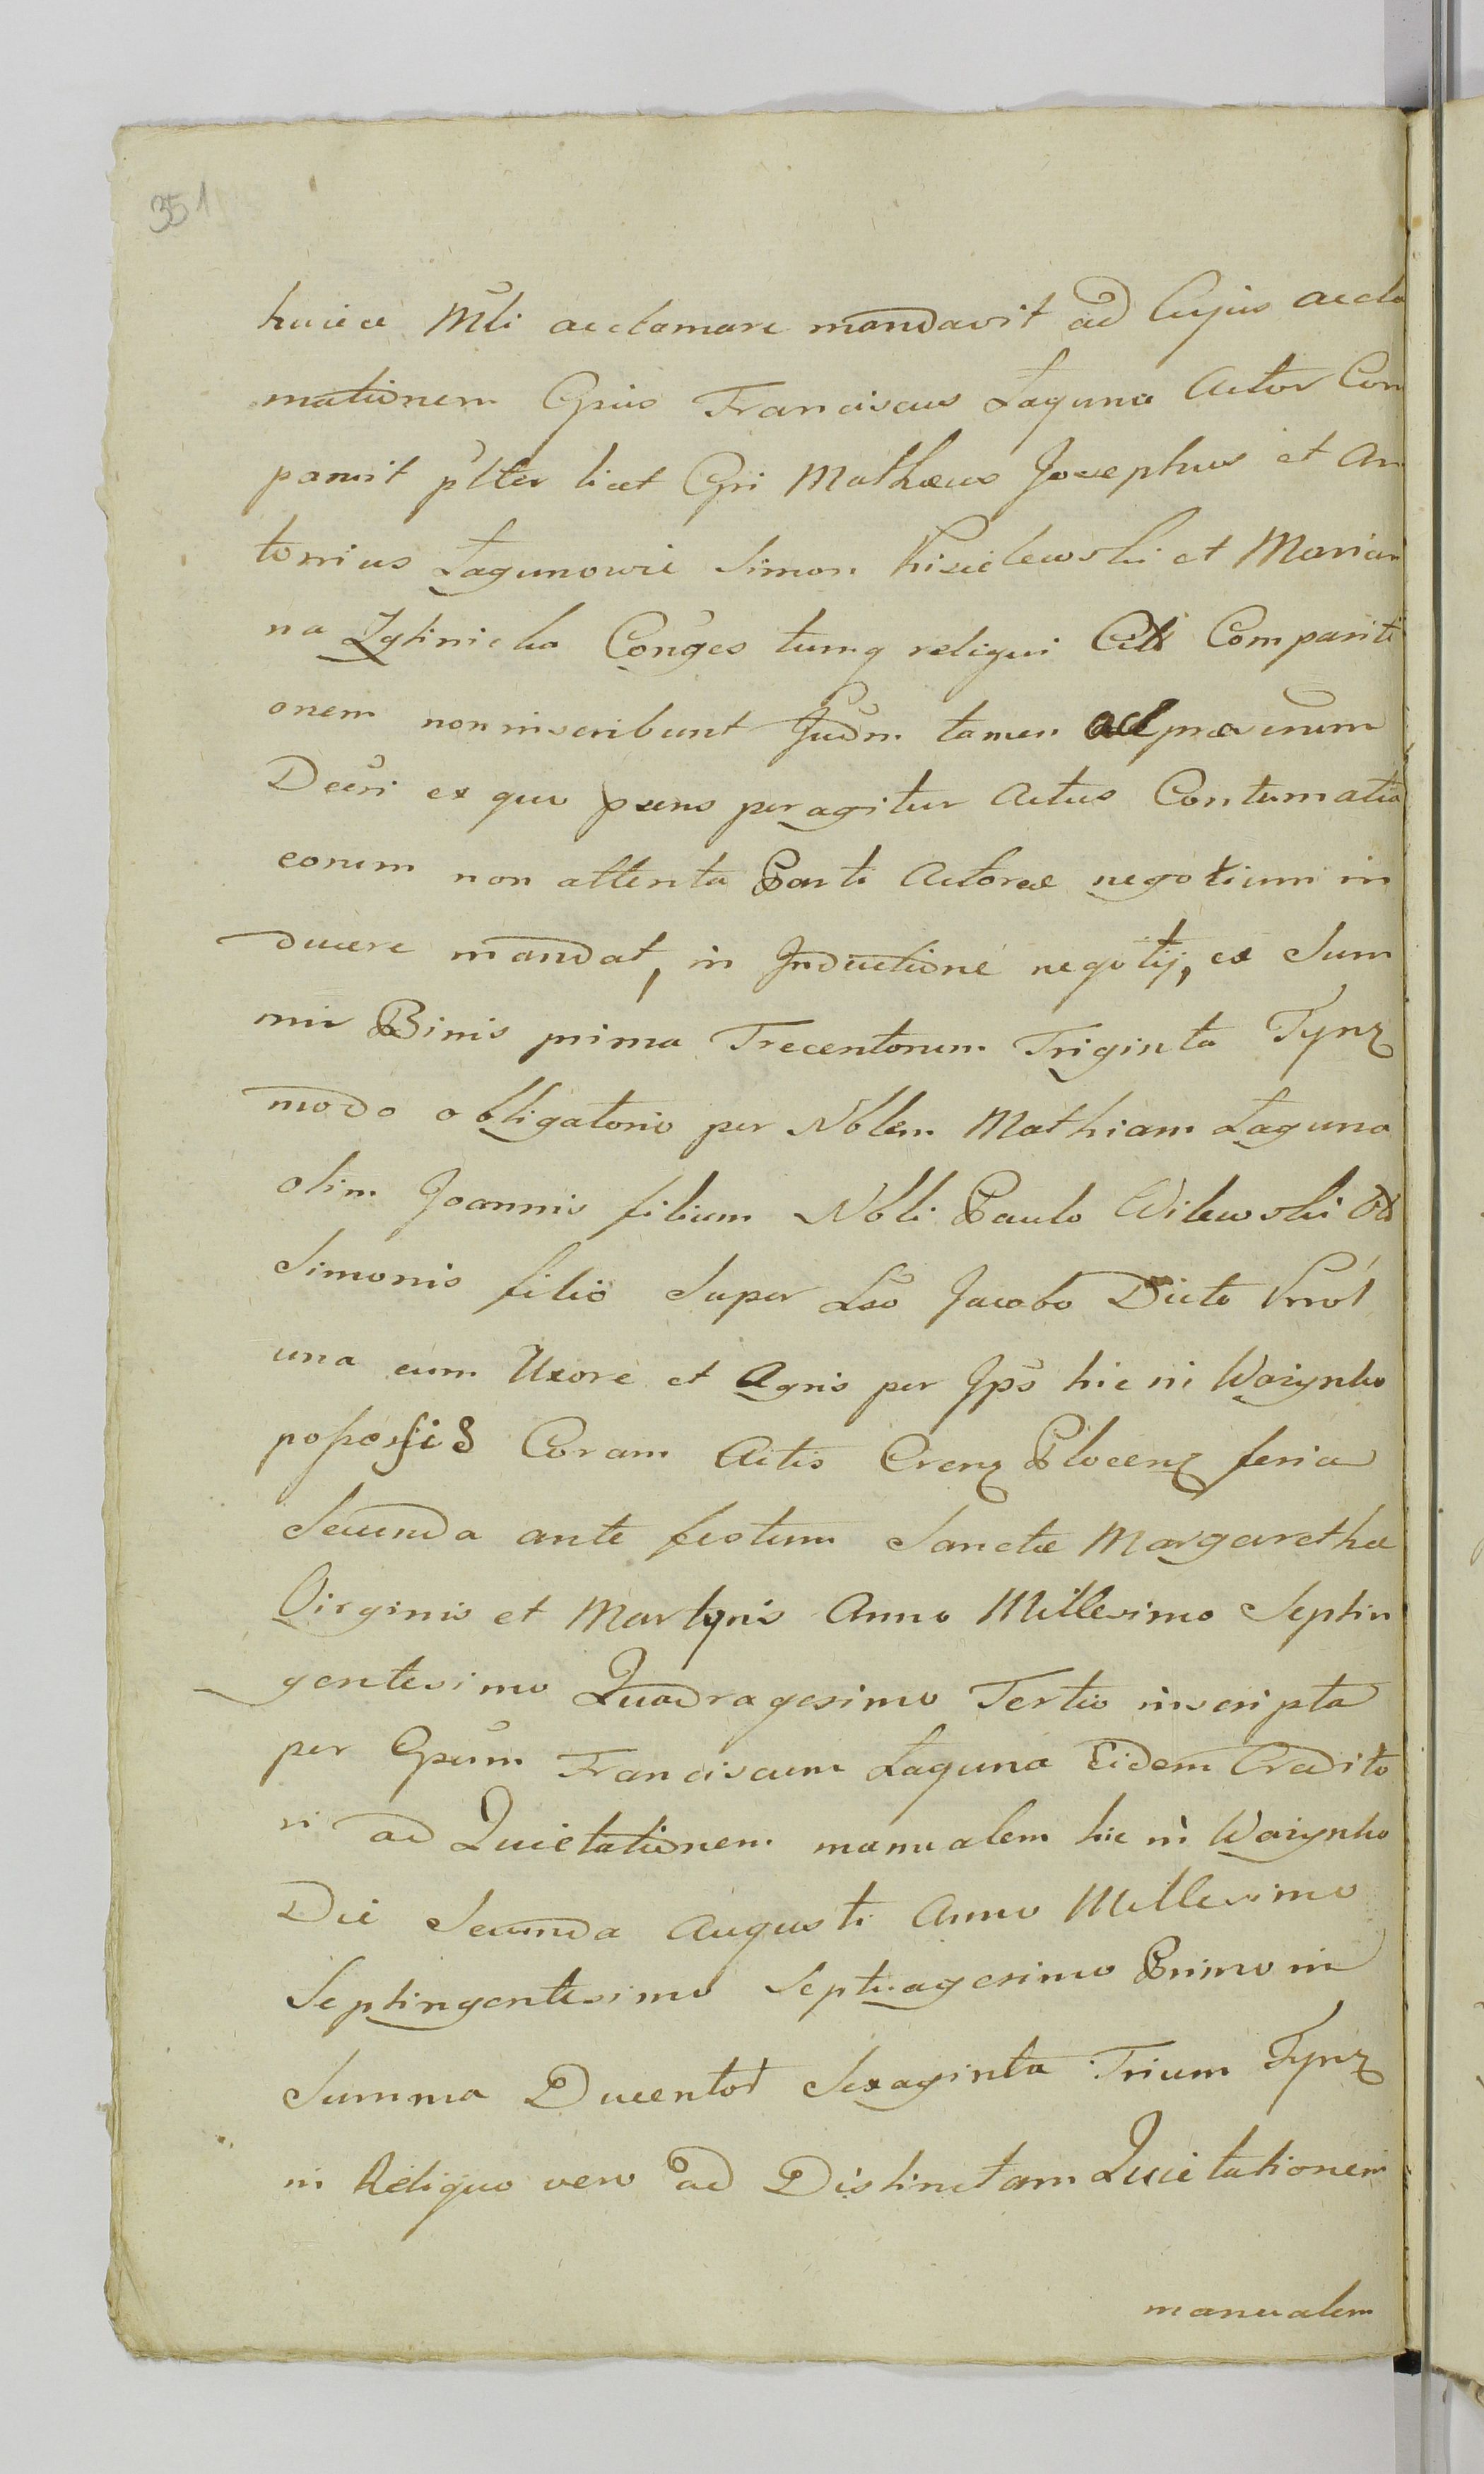 351
huicce Mli acclamare mandavit ad Cujus accla
mationem Gsus Franciscus Laguna Actor Com
paruit plter licet Gsi Mathæus Josephus et An
tonius Lagunowie Simon Kisielewski et Marian
na Zglinicka Conges tumq reliqui Citi Compariti
onem non inscribunt Judm tamen ad præmum
Decri ex quo præns peragitur Actus Contumatia
eorum non attenta Parti Actoreæ negotium in
ducere mandat, in Inductione negotij, ex Sum
mis Binis prima Trecentorum Triginta Tynz
modo obligatorio per Nblem Mathiam Laguna
olim Joannis filium Nbli Paulo Wilewski Od
Simonis filio Super Lso Jacobo Dicto Krol
una cum Uxore et Agris per Ipso hic in Wazynko
possessis Coram Actis Crenz Plocenz feria
Secunda ante festum Sanctæ Margarethæ
Virginis et Martyris Anno Millesimo Septin
gentesimo Quadragesimo Tertio inscripta
per Gsum Franciscum Laguna Eidem Credito
ri ad Quietationem manualem hic in Wazynko
Die Secunda Augusti Anno Millesimo
Septingentesimo Septuagesimo Primo in
Summa Ducentor Sexaginta Trium Tynz
in Reliquo vero ad Distinctam Quietationem
manualem